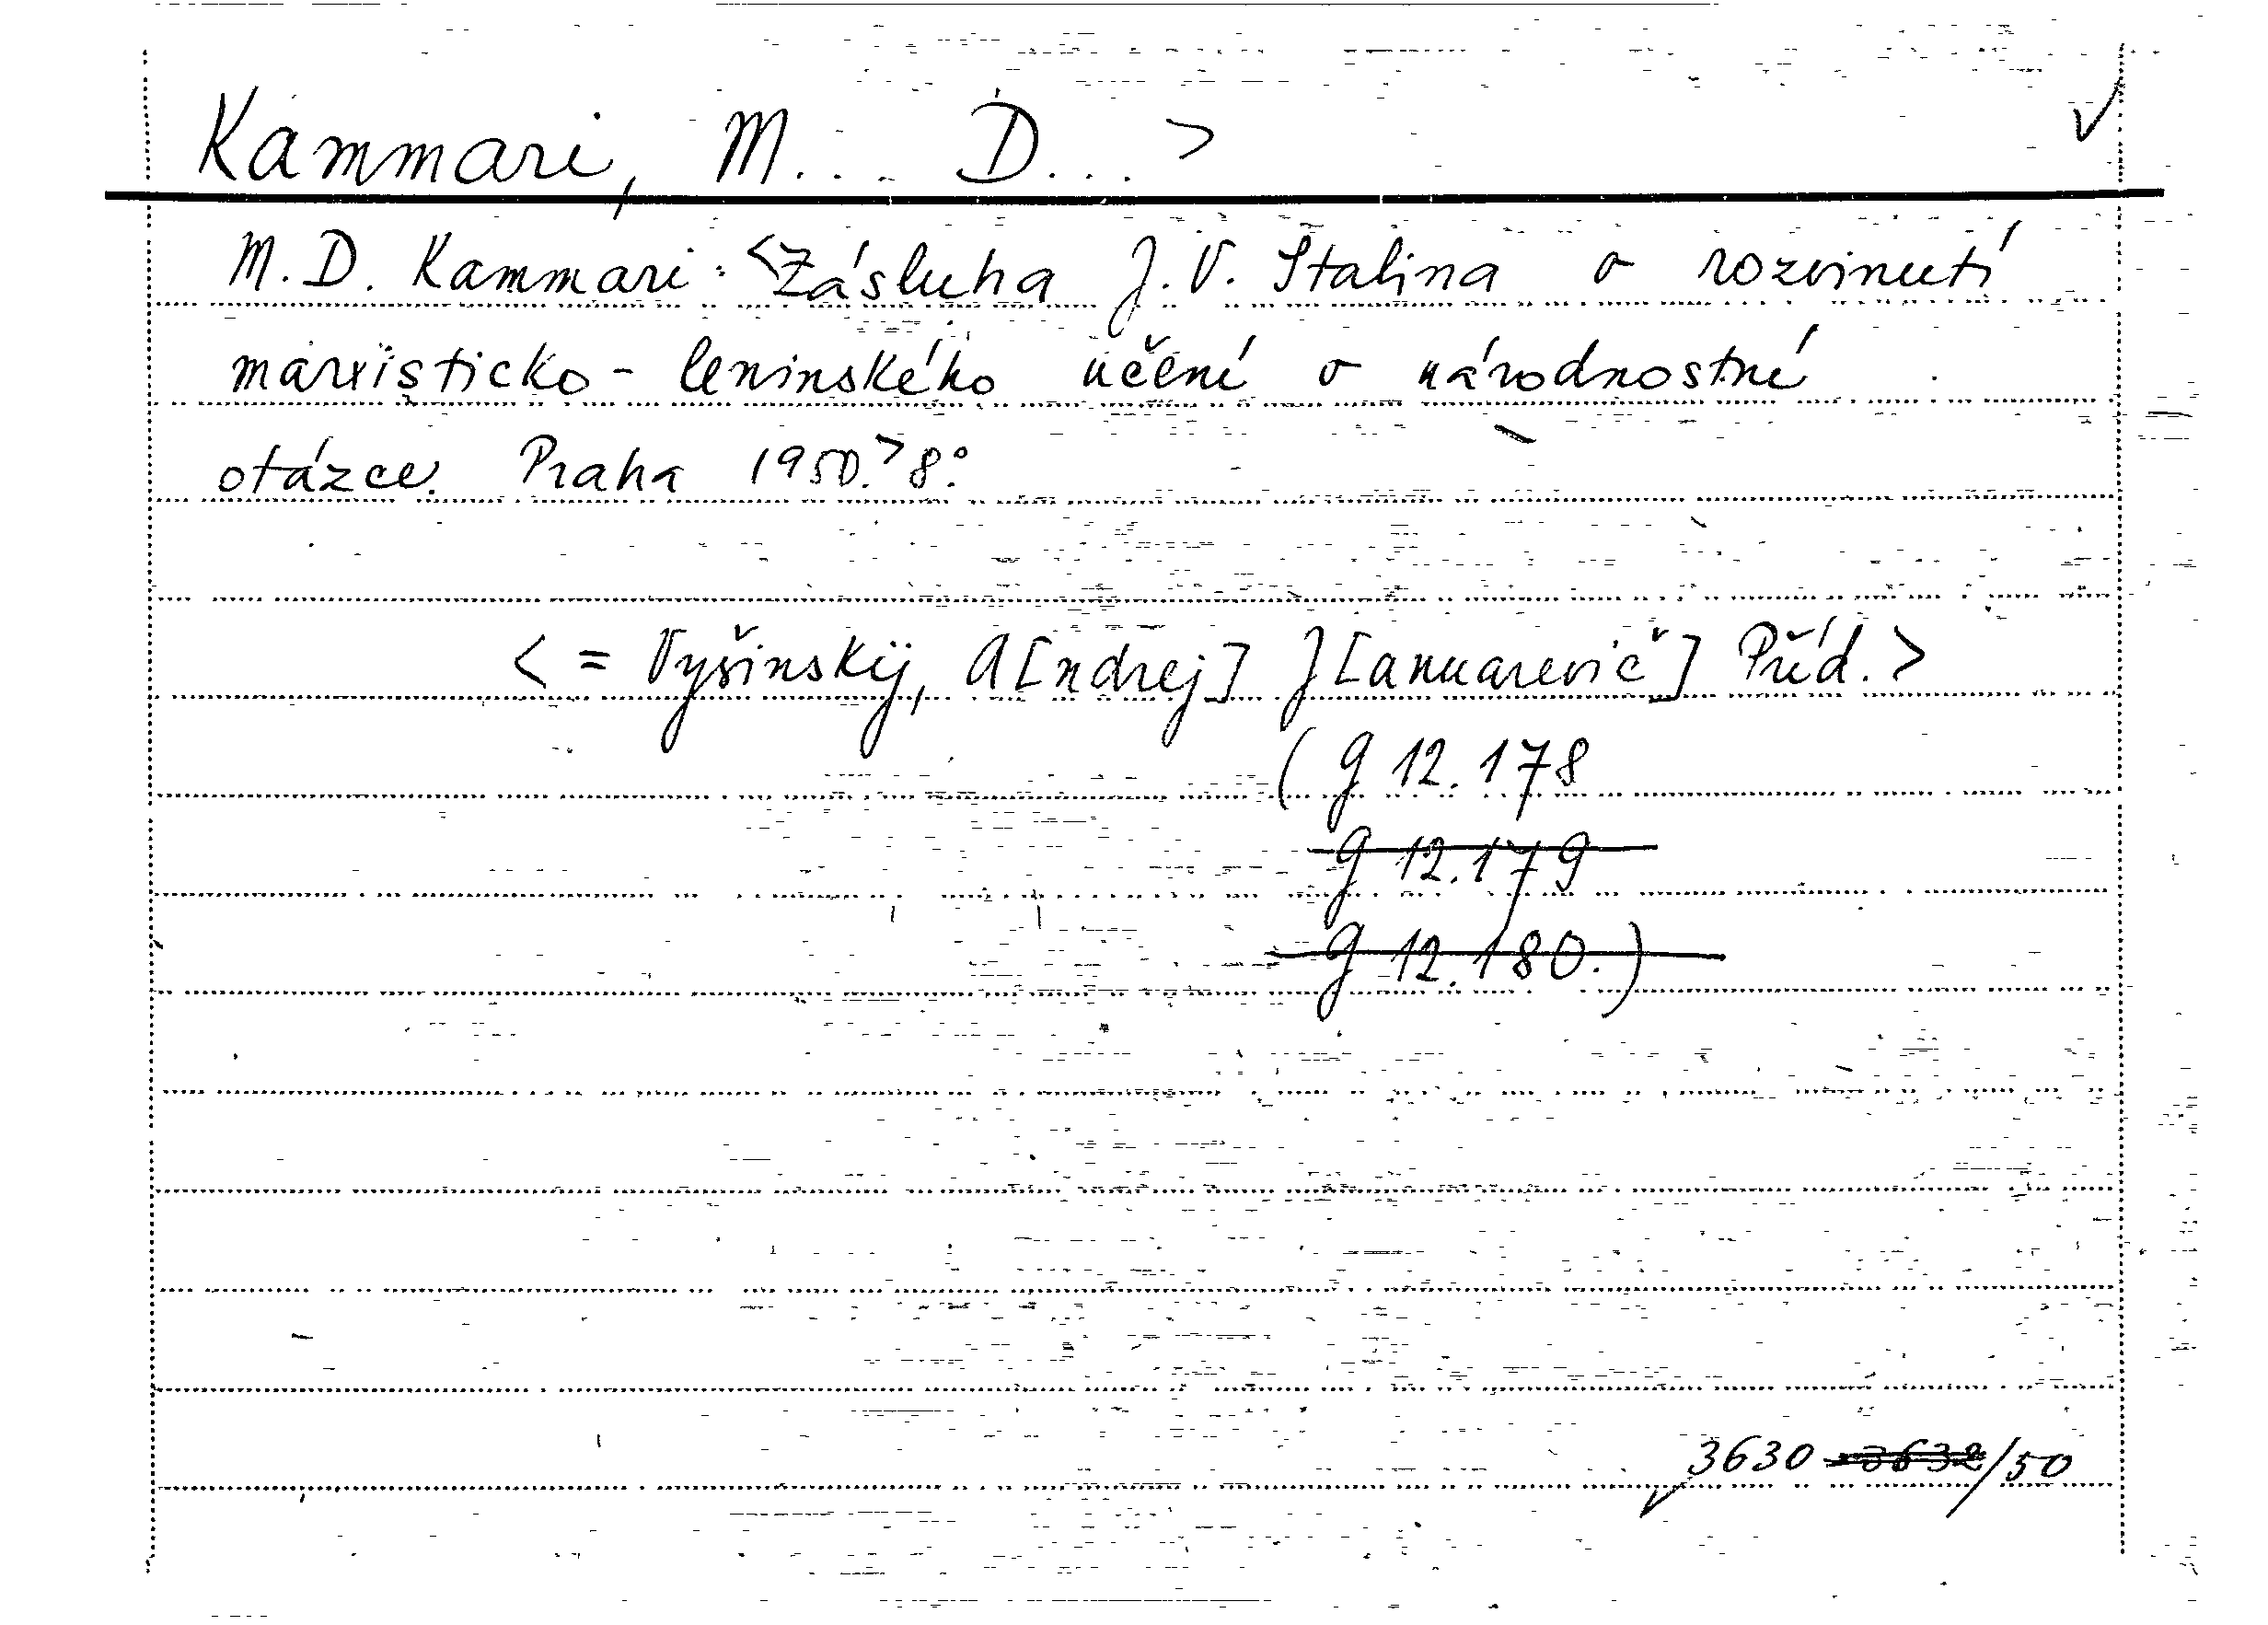 Kammari, M... D... >
M. D. Kammari: <Zásluha J. V. Stalina o rozvinutí
marxisticko-leninského učení o národnostní
otázce. Praha 1950.> 8°.
< = Vyšinskij, A[ndrej] J[anuarevič] Příd. >
(g 12.178
g 12.179
g 12.180.)
3630 3632/50